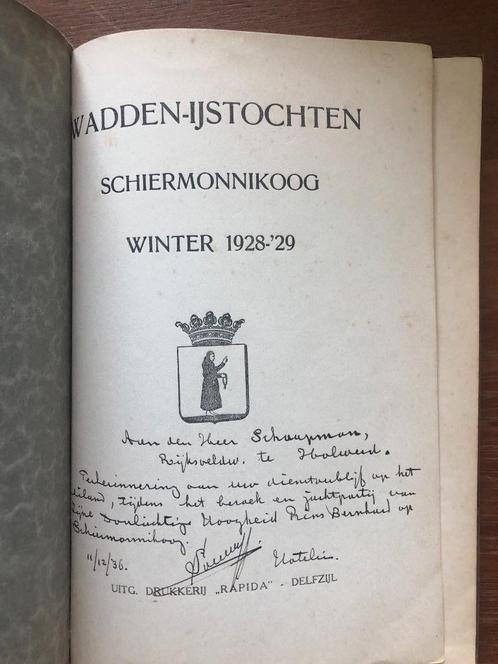 WADDEN-IJSTOCHTEN
SCHIERMONNIKOOG
WINTER 1928-'29
Aan den Heer Schaapman,
Rijksveldw. te Holwerd.
Ter herinnering aan uw dienstverblijf op het
eiland, tijdens het bezoek en jachtpartij van
Zijne Doorluchtige Hoogheid Prins Bernhard op
Schiermonnikoog.
11/12/36.
UITG. DRUKKERIJ „RAPIDA" - DELFZIJL